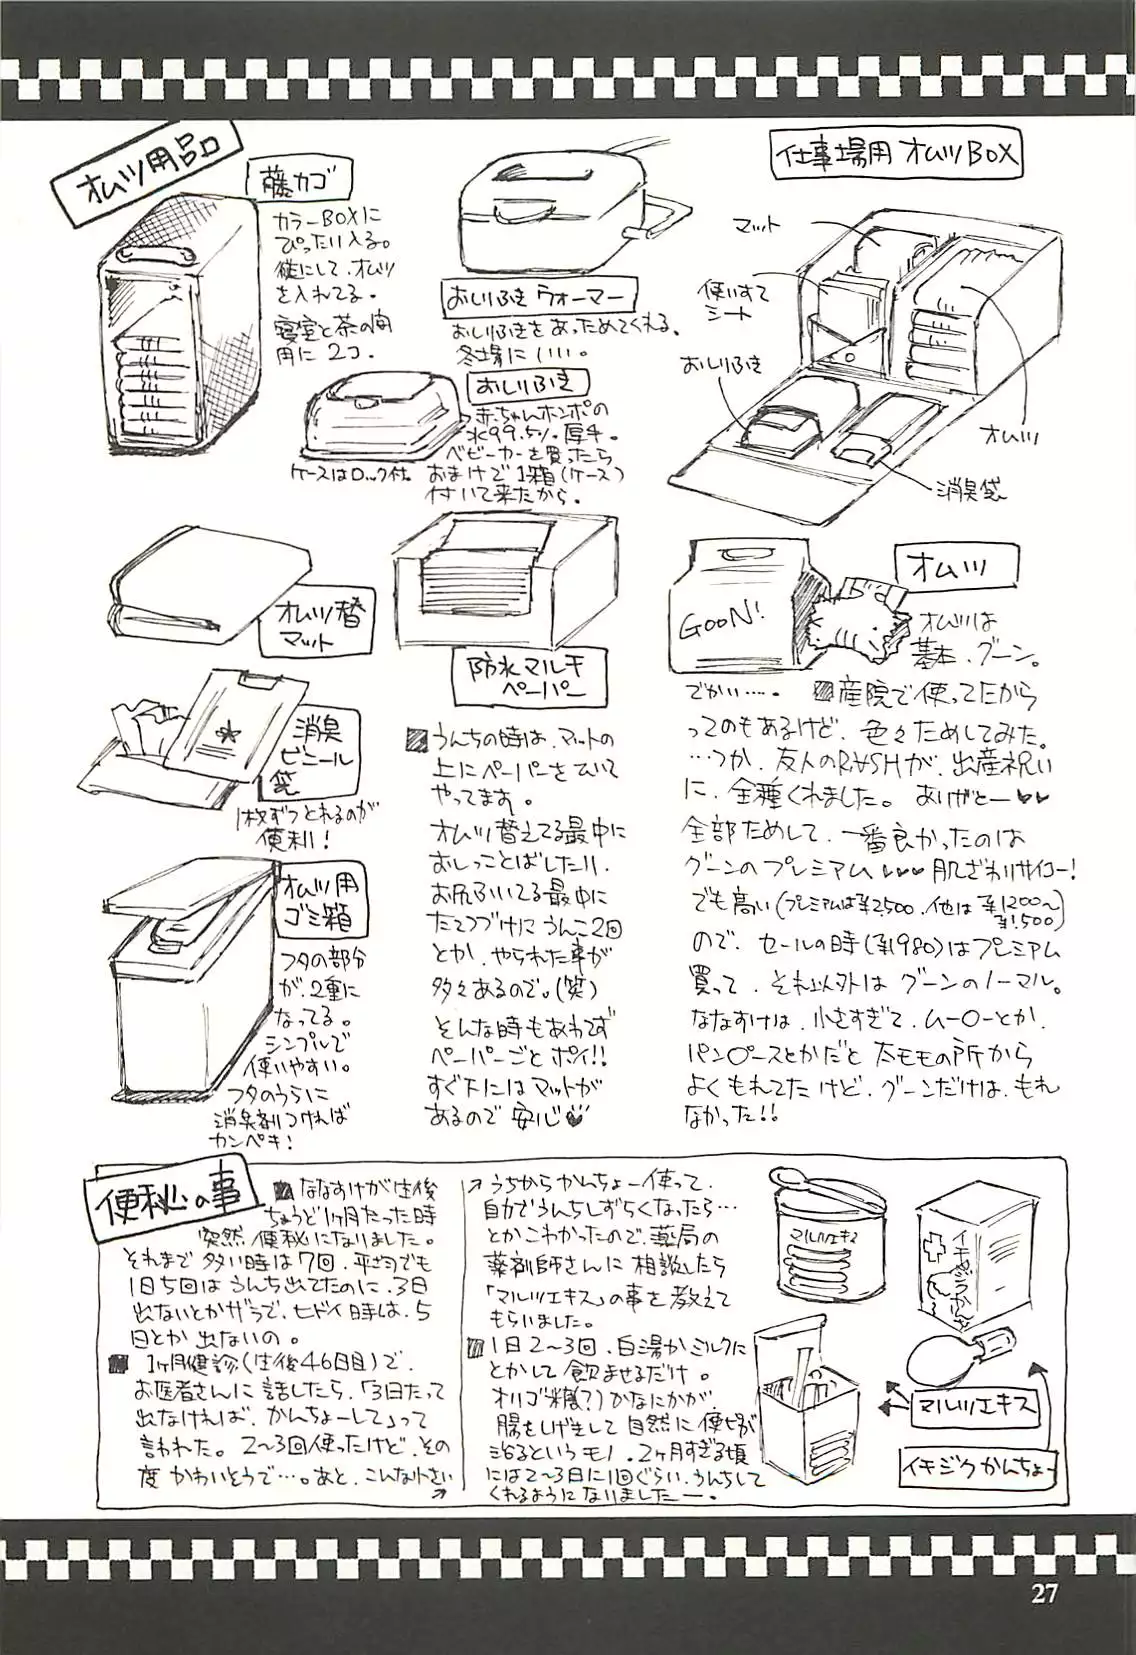 オムツ用品
籐カゴ
カラーBOXに
ぴったり入る。
縦にして、オムツ
を入れてる。
寝室と茶の間
用に2コ。
おしりふきウォーマー
おしりふきをあっためてくれる。
冬場にいい。
おしりふき
赤ちゃんホンポの
水99.5%。厚手。
ベビーカーを買ったら
おまけで1箱(ケース)
付いて来たから。
ケースはロック付。
仕事場用オムツBOX
マット
使いすて
シート
おしりふき
オムツ
消臭袋
オムツ替
マット
防水マルチ
ペーパー
消臭
ビニール
袋
1枚ずつとれるのが
便利!
オムツ用
ゴミ箱
フタの部分
が、2重に
なってる。
シンプルで
使いやすい。
フタのうらに
消臭剤つければ
カンペキ!
うんちの時は、マットの
上にペーパーをひいて
やってます。
オムツ替えてる最中に
おしっことばしたり、
お尻ふいてる最中に
たてつづけにうんこ2回
とか、やられた事が
多々あるので。(笑)
そんな時もあわてず
ペーパーごとポイ!!
すぐ下にはマットが
あるので安心
GOON!
オムツ
オムツは
基本、グーン。
でかい…。
産院で使ってたから
ってのもあるけど、色々ためしてみた。
…つか、友人のRASHが、出産祝い
に、全種くれました。ありがとー♥♥
全部ためして、一番良かったのは
グーンのプレミアム♥♥♥肌ざわりサイコー!
でも高い(プレミアムは¥2500、他は¥1200~
¥1,500)
ので、セールの時(¥1980)はプレミアム
買って、それ以外はグーンのノーマル。
ななすけは、小さすぎて、ムー○ーとか、
パン○ースとかだと太モモの所から
よくもれてたけど、グーンだけは、もれ
なかった!!
便秘の事
ななすけが生後
ちょうど1ヶ月たった時
突然、便秘になりました。
それまで多い時は7回、平均でも
1日5回はうんち出てたのに、3日
出ないとかザラで、ヒドイ時は、5
日とか出ないの。
1ヶ月健診(生後46日目)で、
お医者さんに話したら、「3日たって
出なければ、かんちょーして」って
言われた。2~3回使ったけど、その
度かわいそうで…。あと、こんな小さい
うちからかんちょー使って、
自力でうんちしずらくなったら…
とかこわかったので、薬局の
薬剤師さんに相談したら
「マルツエキス」の事を教えて
もらいました。
1日2~3回、白湯かミルクに
とかして飲ませるだけ。
オリゴ糖(?)かなにかが、
腸をしげきして自然に便秘が
治るというモノ。2ヶ月すぎる頃
には2~3日に1回ぐらい、うんちして
くれるようになりましたー。
マルツエキス
イチジクかんちょー
マルツエキス
イチジクかんちょー
27